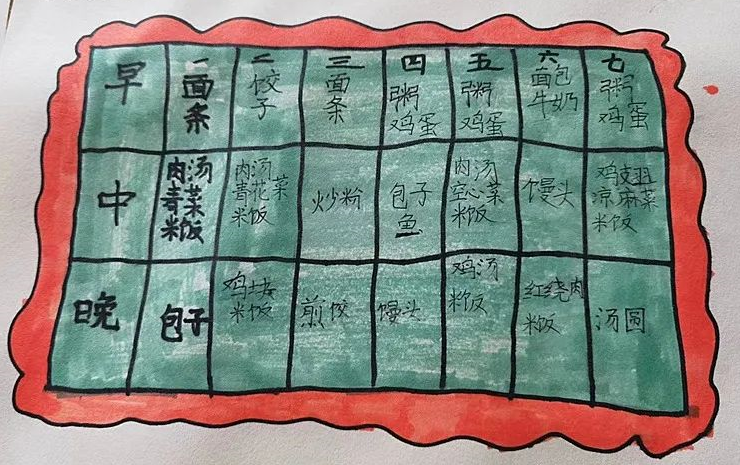 早
一
面
条
二
饺
子
三
面
条
四
粥
鸡蛋
五
粥
鸡蛋
六
面包
牛奶
七
粥
鸡蛋
中
肉汤
青菜
米饭
肉汤
青花菜
米饭
炒粉
包子
鱼
肉汤
空心菜
米饭
馒头
鸡翅
凉麻菜
米饭
晚
包子
鸡块
米饭
煎饺
馒头
鸡汤
米饭
红烧肉
米饭
汤圆